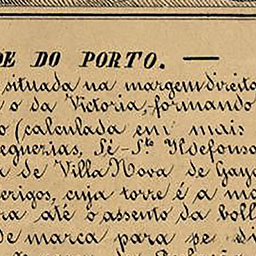 DE DO PORTO. —
situada na margem direita
o da Victoria, formando
o (calculada em mais
eguezias, Sé - Sto Ildefonso
a de Villa Nova de Gaya
erigos, cuja torre é a ma
ra até o assento da boll
de marca para se di